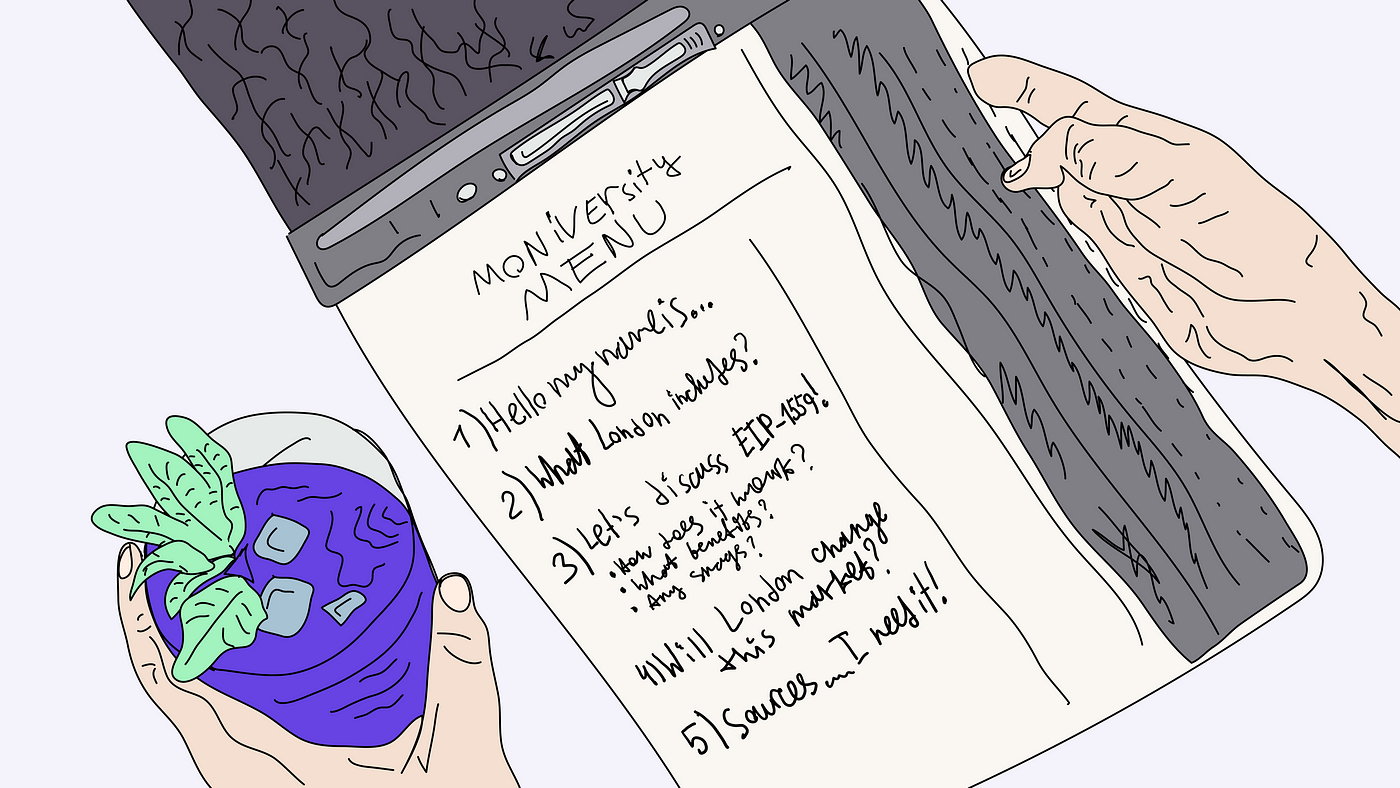 MONIVERSITY
MENU
1) Hello my name is...
2) What London includes?
3) Let's discuss EIP-1559!
• How does it work?
• What benefits?
• Any snags?
4) Will London change
this market?
5) Sources... I need it!